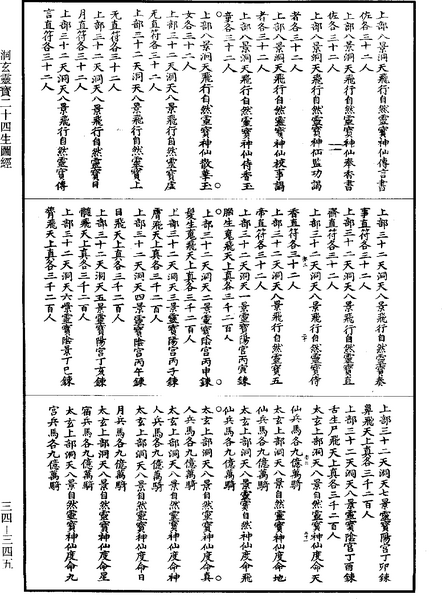 上部八景洞天飛行自然靈寶神仙傳言書
佐各三十二人
上部八景洞天飛行自然靈寶神仙奉香書
佐各三十二人
上部八景洞天飛行自然靈寶神仙監功謁
者各三十二人
上部八景洞天飛行自然靈寶神仙校事謁
者各三十二人
上部八景洞天飛行自然靈寶神仙侍香玉
童各三十二人
上部八景洞天飛行自然靈寶神仙散華玉
女各三十二人
上部三十二天洞天八景飛行自然靈寶虛
无直符各三十二人
上部三十二天洞天八景飛行自然靈寶上
元直符各三十二人
上部三十二天洞天八景飛行自然靈寶日
月直符各三十二人
上部三十二天洞天八景飛行自然靈寶傳
言直符各三十二人
上部三十二天洞天八景飛行自然靈寶奏
事直符各三十二人
上部三十二天洞天八景飛行自然靈寶直
齋直符各三十二人
上部三十二天洞天八景飛行自然靈寶侍
香直符各三十二人
上部三十二天洞天八景飛行自然靈寶五
帝直符各三十二人
上部三十二天洞天一景靈寶陽宮丙寅鍊
腦生魂飛天上真各三千二百人
上部三十二天洞天二景靈寶陰宮丙申鍊
髮生魂飛天上真各三千二百人
上部三十二天洞天三景靈寶陽宮丙子鍊
膚飛天上真各三千二百人
上部三十二天洞天四景靈寶陰宮丙午鍊
目飛天上真各三千二百人
上部三十二天洞天五景靈寶陽宮丁亥鍊
髓飛天上真各三千二百人
上部三十二天洞天六景靈寶陰宮丁巳鍊
膂飛天上真各三千二百人
上部三十二天洞天七景靈寶陽宮丁卯鍊
鼻飛天上真各三千二百人
上部三十二天洞天八景靈寶陰宮丁酉鍊
舌生尸飛天上真各三千二百人
太玄上部洞天八景自然靈寶神仙度命天
仙兵馬各九億萬騎
太玄上部洞天八景自然靈寶神仙度命地
仙兵馬各九億萬騎
太玄上部洞天八景自然靈寶神仙度命飛
仙兵馬各九億萬騎
太玄上部洞天八景自然靈寶神仙度命真
人兵馬各九億萬騎
太玄上部洞天八景自然靈寶神仙度命神
人兵馬各九億萬騎
太玄上部洞天八景自然靈寶神仙度命日
月兵馬各九億萬騎
太玄上部洞天八景自然靈寶神仙度命星
宿兵馬各九億萬騎
太玄上部洞天八景自然靈寶神仙度命九
宮兵馬各九億萬騎
洞玄靈寶二十四生圖經
三四—三四五